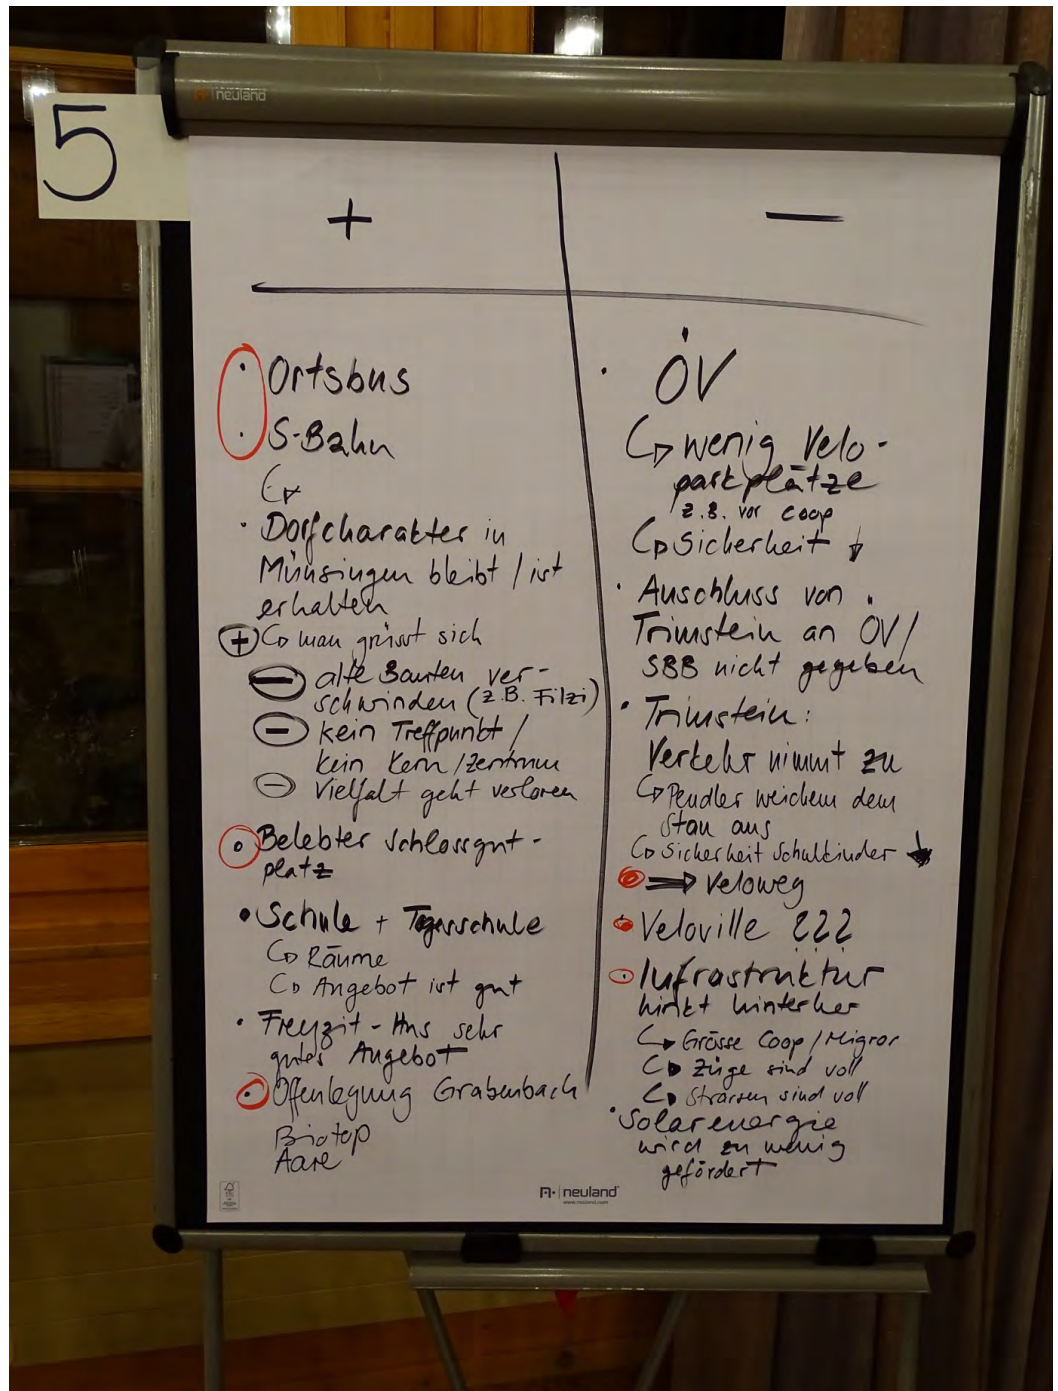 5
neuland
+
· Ortsbus
· S-Bahn
· Dorfcharakter in
Münsingen bleibt / ist
erhalten
+ man grüsst sich
- alte Bauten ver-
schwinden (z.B. Filzi)
- kein Treffpunkt /
kein Kern / Zentrum
- Vielfalt geht verloren
· Belebter Schlossgut-
platz
· Schule + Tagesschule
Räume
Angebot ist gut
· Freyzit-Hus sehr
gutes Angebot
· Offenlegung Grabenbach
Biotop
Aare
—
· ÖV
wenig Velo-
parkplätze
z.B. vor Coop
Sicherheit ↓
· Anschluss von
Trimstein an ÖV /
SBB nicht gegeben
· Trimstein:
Verkehr nimmt zu
Pendler weichem dem
Stau aus
Sicherheit Schulkinder ↓
⇒ Veloweg
· Veloville ???
· Infrastruktur
hinkt hinterher
Grösse Coop / Migros
Züge sind voll
Strassen sind voll
· Solarenergie
wird zu wenig
gefördert
FSC
neuland